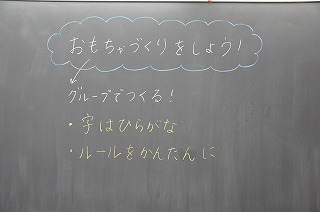 おもちゃづくりをしよう!
グループでつくる!
・字はひらがな
・ルールをかんたんに